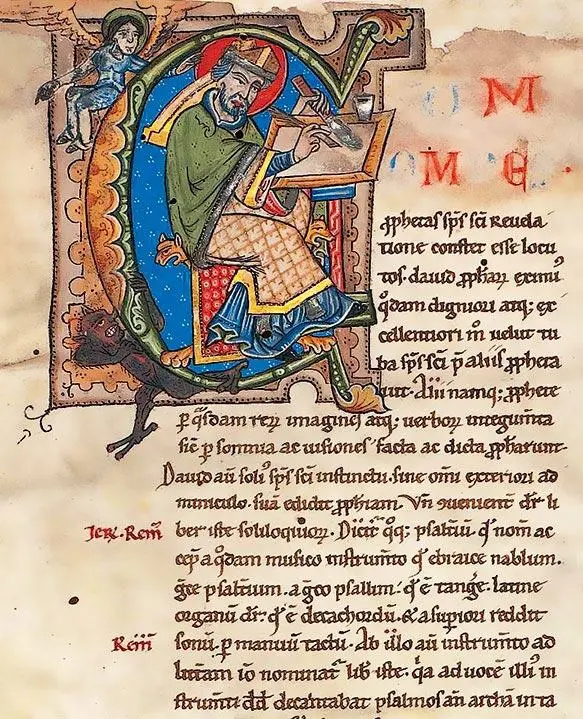 C O M
O M N E S
ꝓphetas sp̄s sc̄i Reuela
tione constet esse locu
tos. dauid ꝓphaꝝ eximiꝰ
q̄dam digniori atq; ex
cellentiori m̄ uelut tu
ba sp̄s sc̄i p̄ aliis ꝓpheta
uit. Alii namq; ꝓphete
ꝑ q̄sdam reꝝ imagines atq; uerboꝝ integum̄ta
sic̄ ꝑ somnia ac uisiones facta ac dicta ꝓphaꝛunt.
Dauid aū soliꝰ sp̄s sc̄i instinctu. sine omi exteriori ad
miniculo. suā edidit ꝓphiam. Vn̄ ꝯuenient̄ dr̄ li
ber iste soliloquioꝝ. Dicit̄ q̊q; psaltiū. q̇ nom̄ ac
cep̄ a q̊dam musico instrum̄to q̇ ebraice nablum.
gr̄ce psalt̄ium. a gr̄eo psallin. q̇ ē tanḡe. latine
organū dr̄. q̇ ē decachordū. & a supiori reddit
sonū. ꝑ manuū tactū. Ab illo aū instrum̄to ad
litt̄am iō nominat̄ lib̄ iste. q̇a ad uocē illiꝰ in
strum̄ti dd̄ decantabat psalmos an̄ archā in ta
Jeꝝ. Rem̄
Rem̄